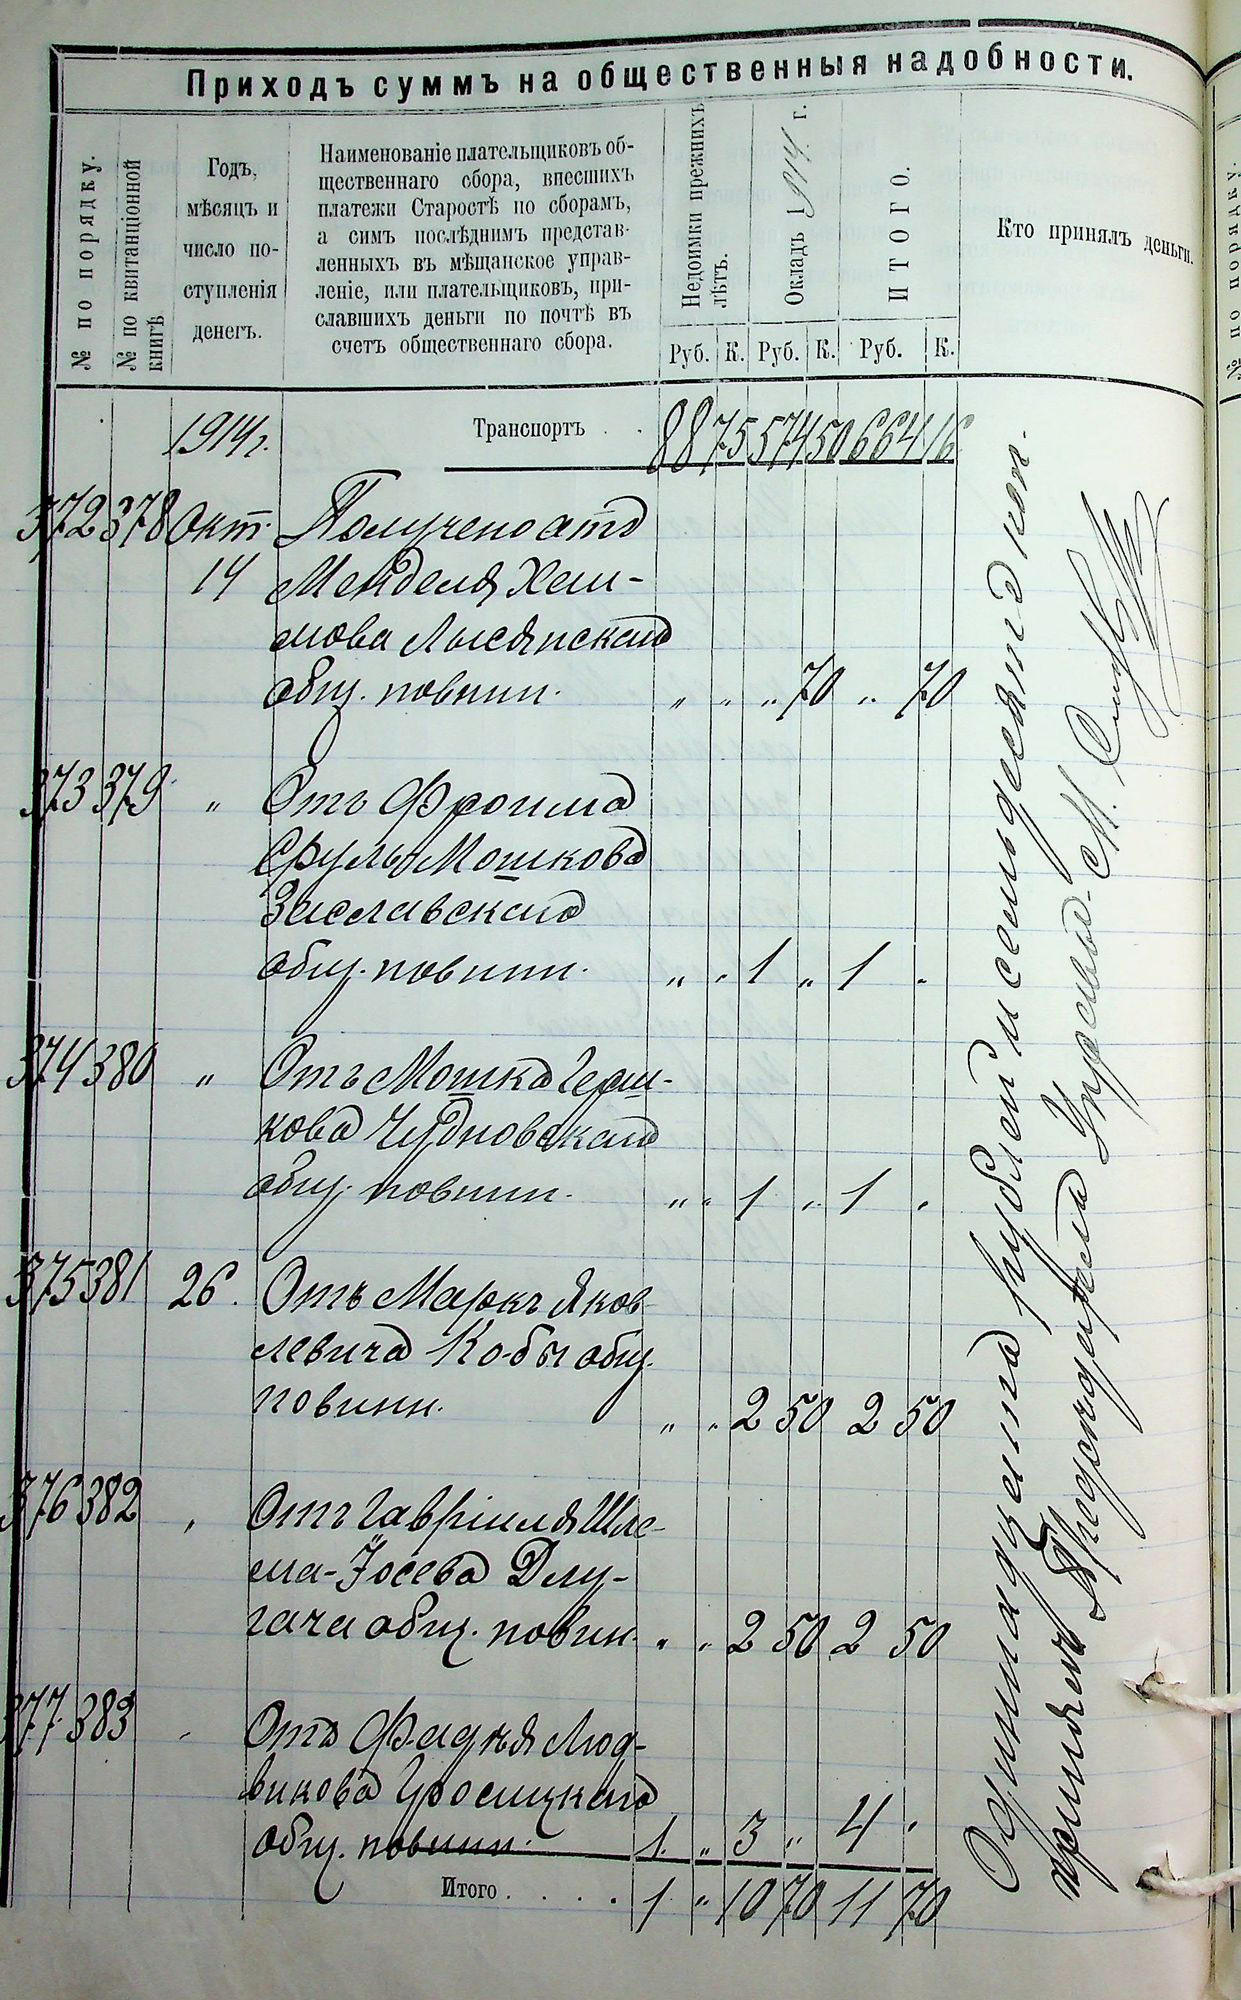 Приходъ суммъ на общественныя надобности.
№ по порядку.
№ по квитанціонной книгѣ
Годъ, мѣсяцъ и число поступленія денегъ.
Наименованіе плательщиковъ об-
щественнаго сбора, внесшихъ
платежи Старостѣ по сборамъ,
а симъ послѣднимъ представ-
ленныхъ въ мѣщанское управ-
леніе, или плательщиковъ, при-
славшихъ деньги по почтѣ въ
счетъ общественнаго сбора.
Недоимки прежнихъ лѣтъ.
Окладъ 1914 г.
ИТОГО.
Кто принялъ деньги.
Руб. К. Руб. К. Руб. К.
1914 г. Транспортъ . . 88 75 574 50 664 16
372 378 Окт. Получено отъ
14 Менделя Хаи-
мова Лысянскаго
общ. повинн. " " " 70 " 70
373 379 " Отъ Фроима
Сруля Мошкова
Заславскаго
общ. повинн. " " 1 " 1 "
374 380 " Отъ Мошка Герш-
кова Чудновскаго
общ. повинн. " " 1 " 1 "
375 381 26. Отъ Маркъ Яков
левича Ко-бы общ.
повинн. " " 2 50 2 50
376 382 " Отъ Гавріиля Шле-
ма-Іосева Длу-
гача общ. повин. " " 2 50 2 50
377 383 " Отъ Фадѣя Люд-
викова
общ. повинн. 1 " 3 " 4 "
Итого . . . . 1 " 10 70 11 70
Одиннадцать рублей и семьдесятъ коп.
принялъ Предсѣдатель Управы М.
№ по порядку.